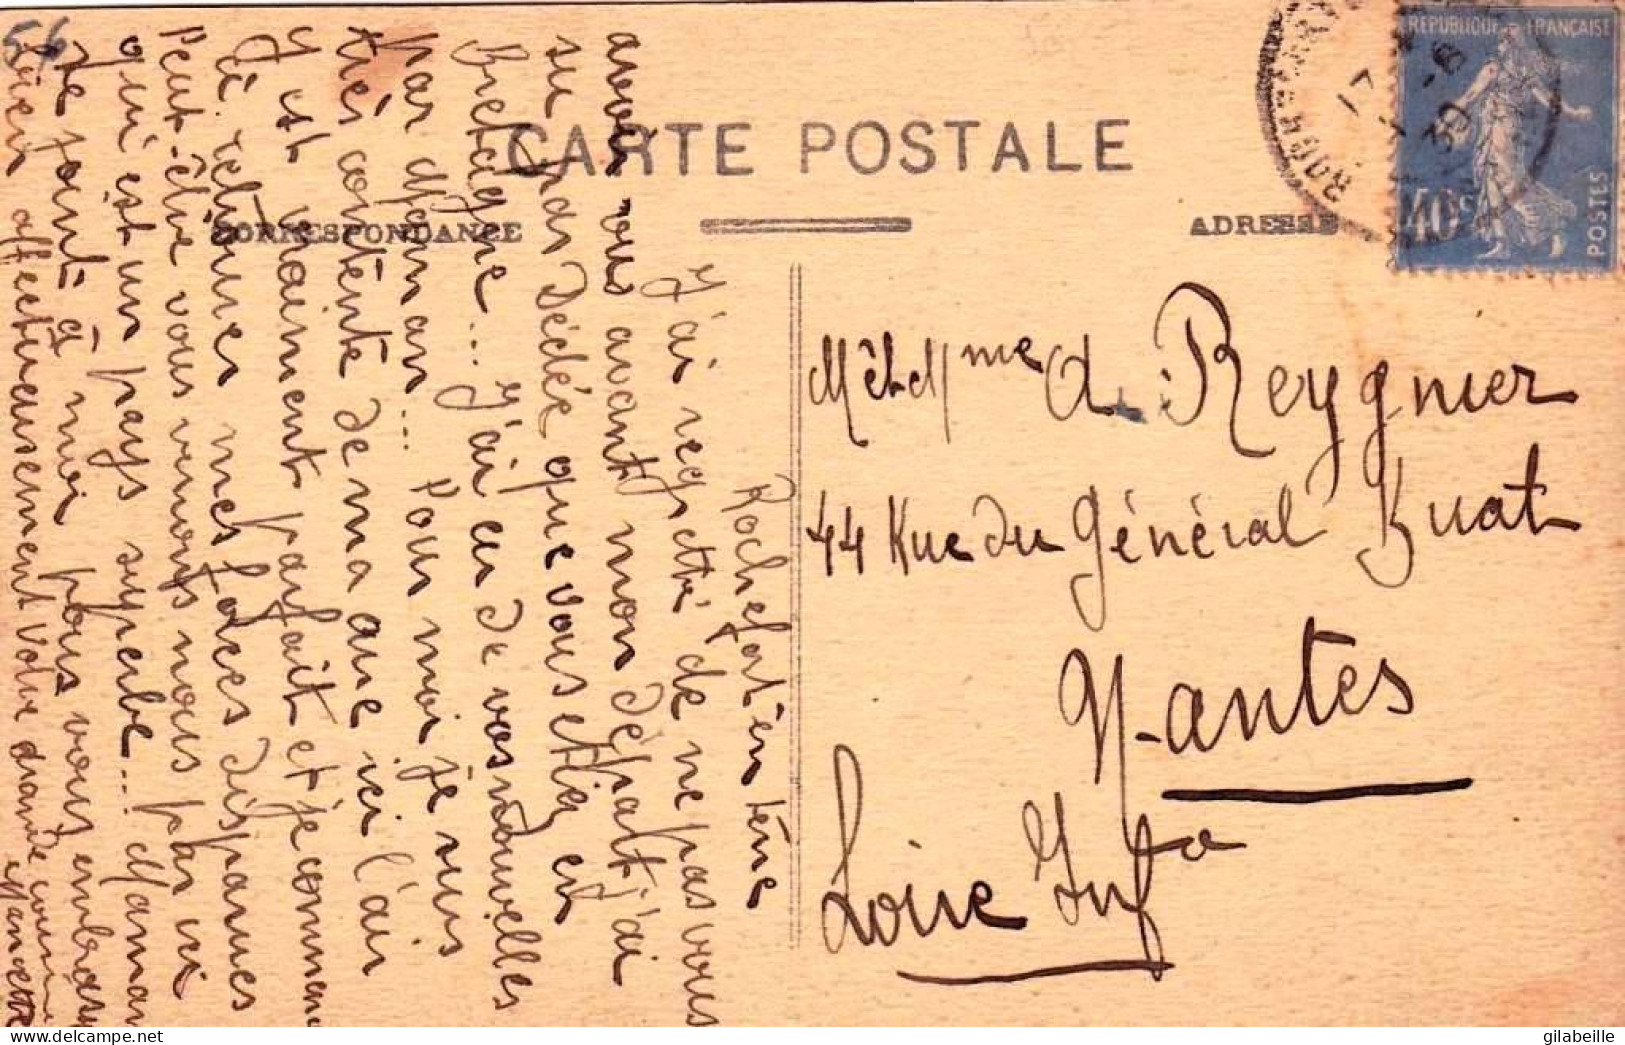 CARTE POSTALE
CORRESPONDANCE
ADRESSE
REPUBLIQUE FRANÇAISE
40c
POSTES
56
Rochefort en terre
J'ai regretté de ne pas vous
avoir vus avant mon départ j'ai
su pas Dédé que vous etiez en
Bretagne... J'ai eu de vos nouvelles
par Maman... Pour moi je suis
très contente de ma cure ici l'air
y est vraiment parfait et je commence
à retrouver mes forces disparues
Peut-être vous verrons nous par ici
qui est un pays superbe... Maman
se joint à moi pour vous embrasser
bien affectueusement votre grande cousine
Manette
Mr et Mme d. Reygnier
44 Rue du Général Buat
Nantes
Loire Infre
gilabeille